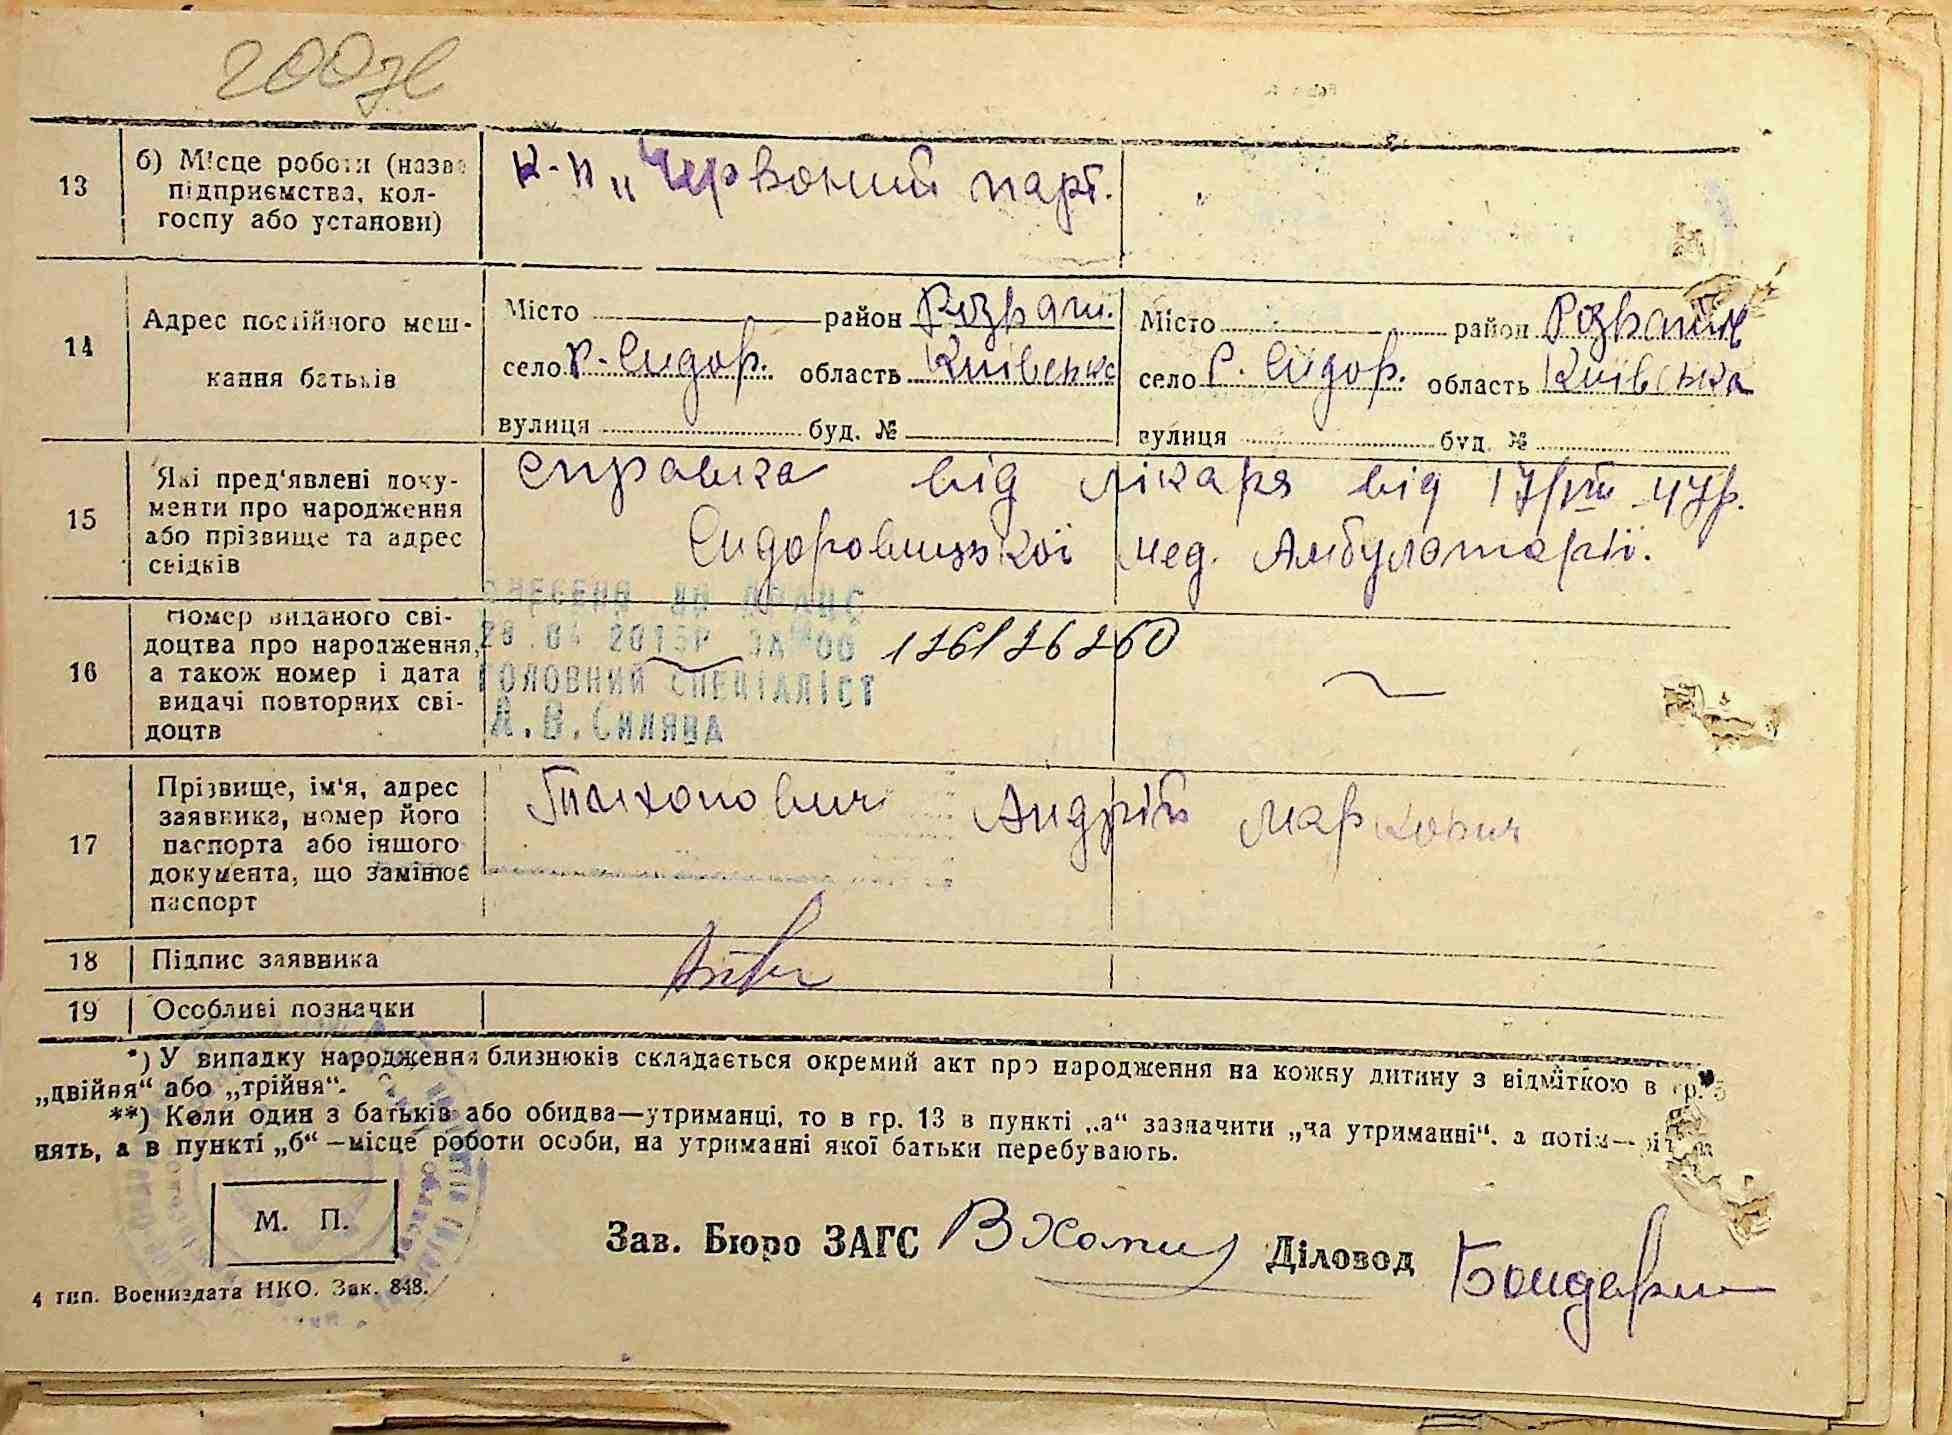 200зв
13
б) Місце роботи (назва
підприємства, кол-
госпу або установи)
к-п „Червоний парт.
14
Адрес постійного меш-
кання батьків
Місто район Розваж.
село Р. Сидор. область Київська
вулиця буд. №
Місто район Розваж
село Р. Сидор. область Київська
вулиця буд. №
15
Які пред'явлені доку-
менти про народження
або прізвище та адрес
свідків
справка від лікаря від 17/VIII 47р.
Сидоровицької мед. Амбулаторії.
16
Номер виданого сві-
доцтва про народження,
а також номер і дата
видачі повторних сві-
доцтв
ВНЕСЕНИ ДО ДРАЦС
28.04 2015Р ЗА №00 126126260
ГОЛОВНИЙ СПЕЦІАЛІСТ
А.В.СИЛЯВА
17
Прізвище, ім'я, адрес
заявника, номер його
паспорта або іншого
документа, що замінює
паспорт
Тимхопович Андрій Маркович
18
Підпис заявника
19
Особливі позначки
*) У випадку народження близнюків складається окремий акт про народження на кожну дитину з відміткою в гр. 5
„двійня“ або „трійня“.
**) Коли один з батьків або обидва—утриманці, то в гр. 13 в пункті „а“ зазначити „на утриманні“, а потім—
нять, а в пункті „б“ —місце роботи особи, на утриманні якої батьки перебувають.
М. П.
Зав. Бюро ЗАГС
Діловод
4 тип. Воениздата НКО. Зак. 848.